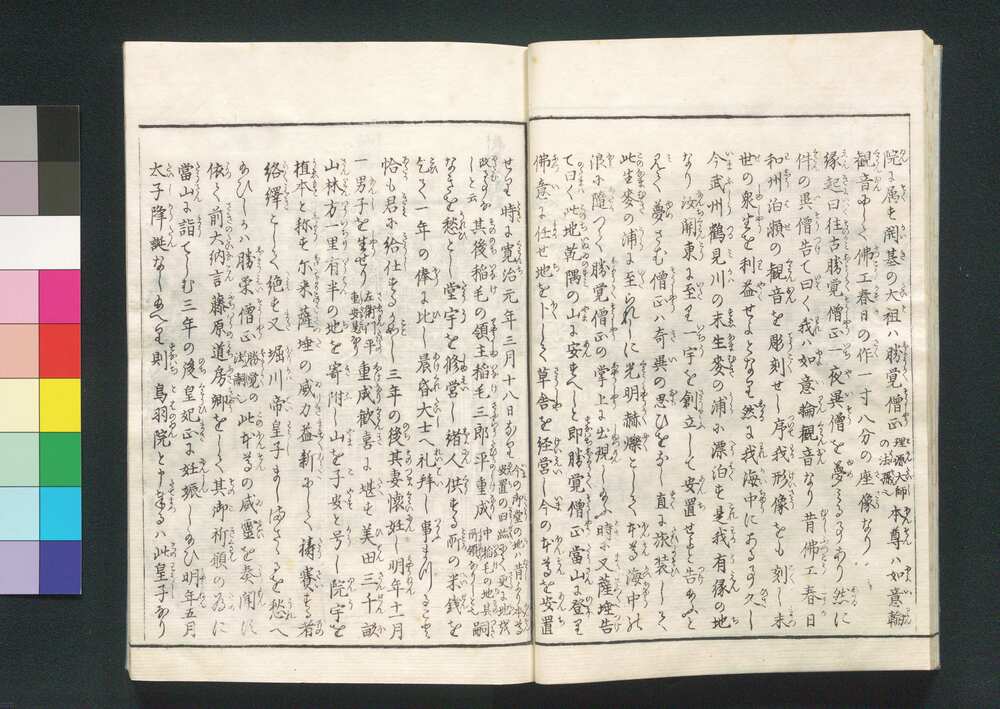 院に属す開基の大祖ハ勝覚僧正理源大師の法嗣也本尊ハ如意輪
観音にして佛工春日の作一寸八分の座像なり
縁起曰往古勝覚僧正一夜異僧を夢る事あり然に
件の異僧告て曰く我ハ如意輪観音なり昔佛工春日
和州泊瀬の観音を彫刻せし序我形像をも刻し末
世の衆生を利益せよとなり然に我海中にある事久し
今武州鶴見川の末生麥の浦に漂泊す是我有縁の地
なり汝関東に至り一宇を創立して安置せよと告あふと
見て夢さむ僧正ハ奇異の思ひをなし直に旅装して
此生麥の浦に至られしに光明赫爍として本尊海中の
浪に随つて勝覚僧正の掌上に出現しあふ時に又薩埵告
て曰く此地乾隅の山に安すへしと即勝覚僧正當山に登り
佛意に任せ地を卜して草舎を経営し今の本尊を安置
せり時に寛治元年三月十八日なり今の御堂の地ハ昔の本尊安置の旧跡
しと云其後稲毛の領主稲毛三郎平重成嗣
なきを愁とし堂宇を修営し諸人供する所の米銭を
乞て一年の俸に比し晨昏大士へ礼拝し事まつる事
恰も君に給仕するかことし三年の後其妻懐妊し明年十月
一男子を生せり左衛門平重安是なり重成歓喜に堪す美田三千畝
山林方一里有半の地を寄附し山を子安と号し院宇を
植本と称す尓来薩埵の威力益新にして祷賽する者
絡繹として絶す又堀川帝皇子ましまさゝるを愁へ
あひしかハ勝栄僧正勝覚の法嗣也此本尊の威靈を奏聞に
依て前大納言藤原道房卿をして其御祈願の為に
當山に詣てしむ三年の後皇妃正に妊娠しあひ明年五月
太子降誕なしあへり則鳥羽院と申奉るハ此皇子なり